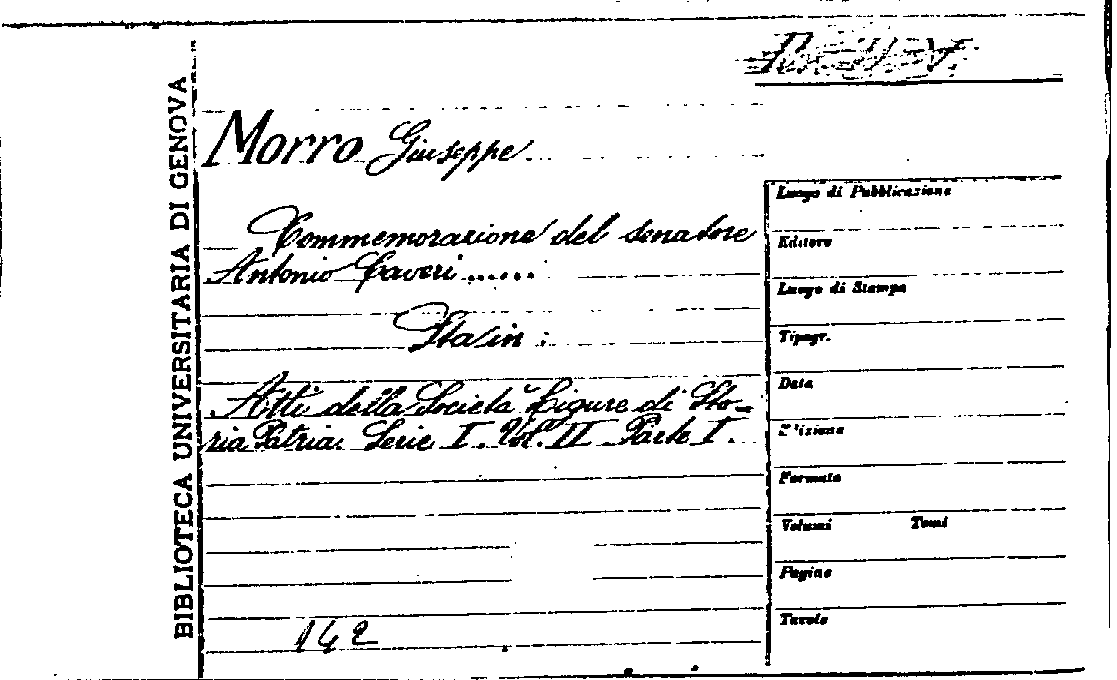 BIBLIOTECA UNIVERSITARIA DI GENOVA
Morro Giuseppe
Commemorazione del senatore
Antonio Caveri ......
Sta in :
Atti della Società Ligure di Sto-
ria Patria. Serie I. Vol. II Parte I.
142
Luogo di Pubblicazione
Editore
Luogo di Stampa
Tipogr.
Data
Edizione
Formato
Volumi Tomi
Pagine
Tavole